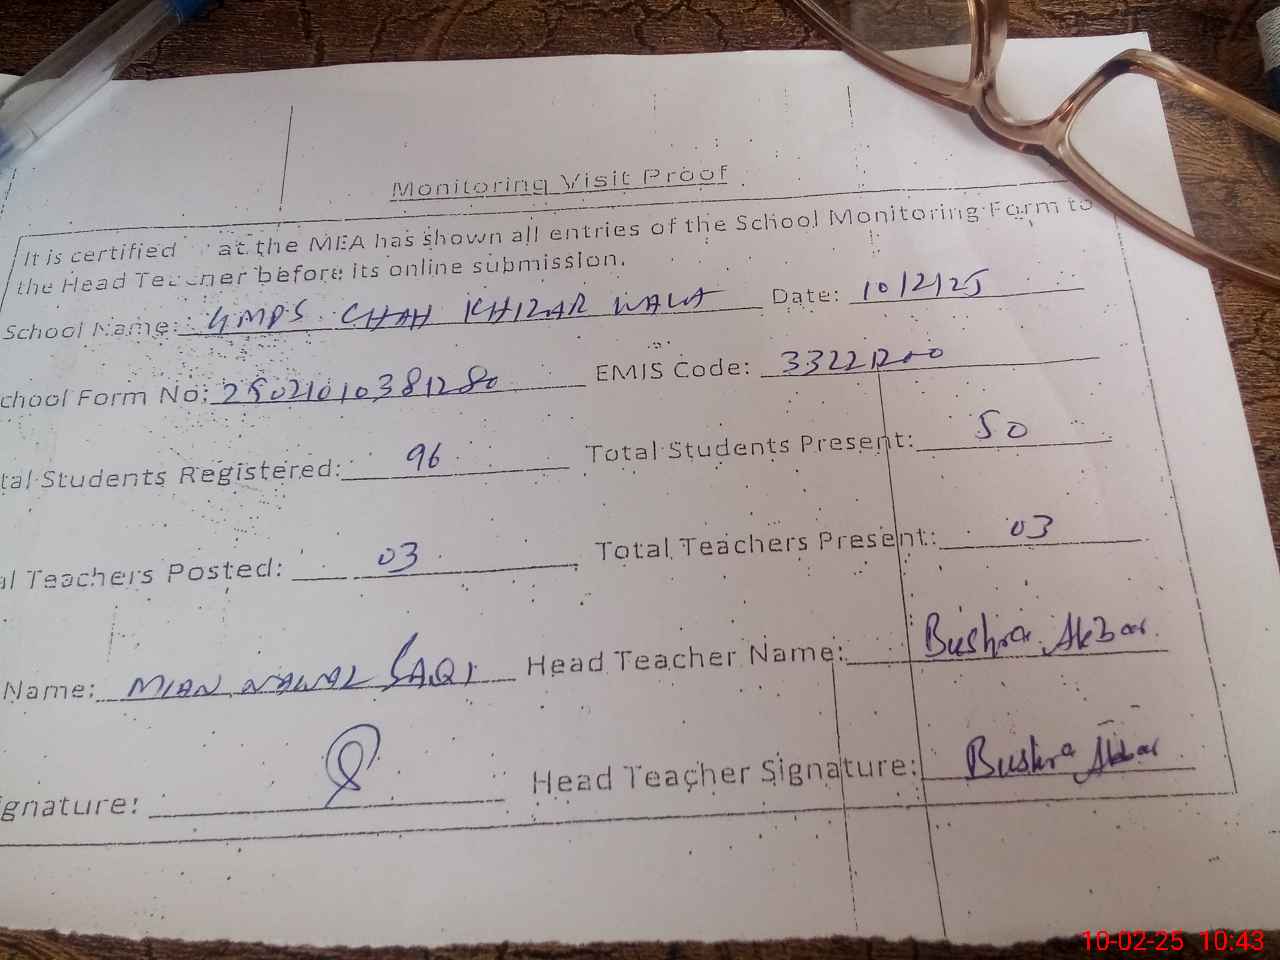 Monitoring Visit Proof
It is certified at the MEA has shown all entries of the School Monitoring Form to
the Head Teacher before its online submission.
School Name: GMPS CHAH KHIZAR WALA Date: 10/2/25
chool Form No: 25021010381280 EMIS Code: 33221200
tal Students Registered: 96 Total Students Present: 50
al Teachers Posted: 03 Total Teachers Present: 03
Name: MIAN NAWAZ SAQI Head Teacher Name: Bushra Akbar
ignature: Head Teacher Signature: Bushra Akbar
10-02-25 10:43